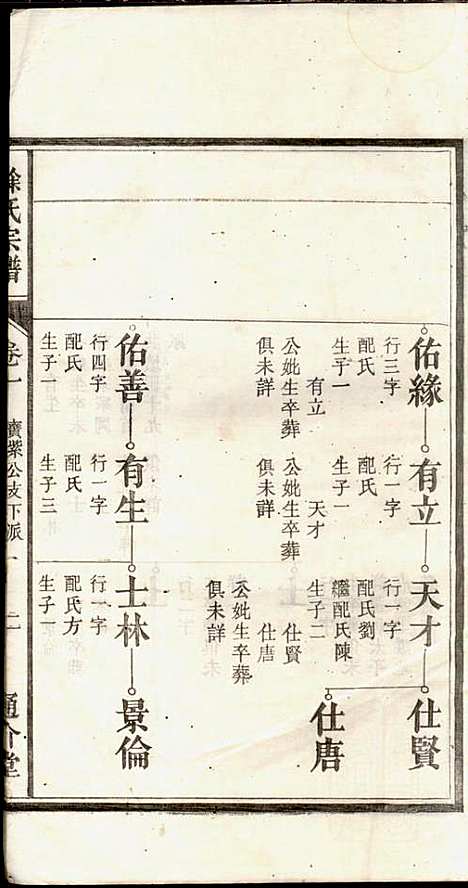 佑緣 有立 天才 仕賢
行三字 行一字 行一字
配氏 配氏 配氏劉
繼配氏陳
生子一 生子一 生子二
有立 天才 仕賢
仕唐
公妣生卒葬 公妣生卒葬 公妣生卒葬
俱未詳 俱未詳 俱未詳
仕唐
佑善 有生 士林 景倫
行四字 行一字 行一字
配氏 配氏 配氏方
生子一 生子三 生子一
徐氏宗譜 卷一 寶紫公支下派一 二 通介堂